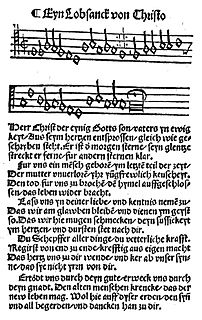 ¶ Eyn Lobsanck von Christo
HErr Christ der eynig Gotts son/ vaters yn ewig
keyt/ Aus seym hertzen entsprossen/ gleich wie ge
schryben steht. Er ist ð morgen sterne/ seyn glentze
streckt er ferne/ fur andern sternen klar.
Fur uns ein mensch geborē/ ym letzten teil der zeyt/
Der mutter unverlorē/ yhr yūgfrewlich keuscheyt.
Den tod fur uns zu brochē/ dē hymel auffgeschlos
sen/ das leben wider bracht.
Lass uns yn deiner liebe/ und kentnis nemē zu/
Das wir am glawben bleibē/ und dienen ym geyst
so. Das wir hie mugen schmecken/ deyn sussickeyt
ym hertzen/ und dursten stet nach dir.
Du Schepffer aller dinge/ du vetterliche krafft.
Regirst von end zu ende/ krefftig aus eigen macht
Das hertz uns zu dir wende/ und ker ab unser syn
ne/ das sye nicht yrn von dir.
Ertödt uns durch deyn gute/ erweck uns durch
deyn gnad. Den alten menschen krencke/ das der
new leben mag. Wol hie auff dyser erden/ den syn
und all begerden/ und dancken han zu dir.